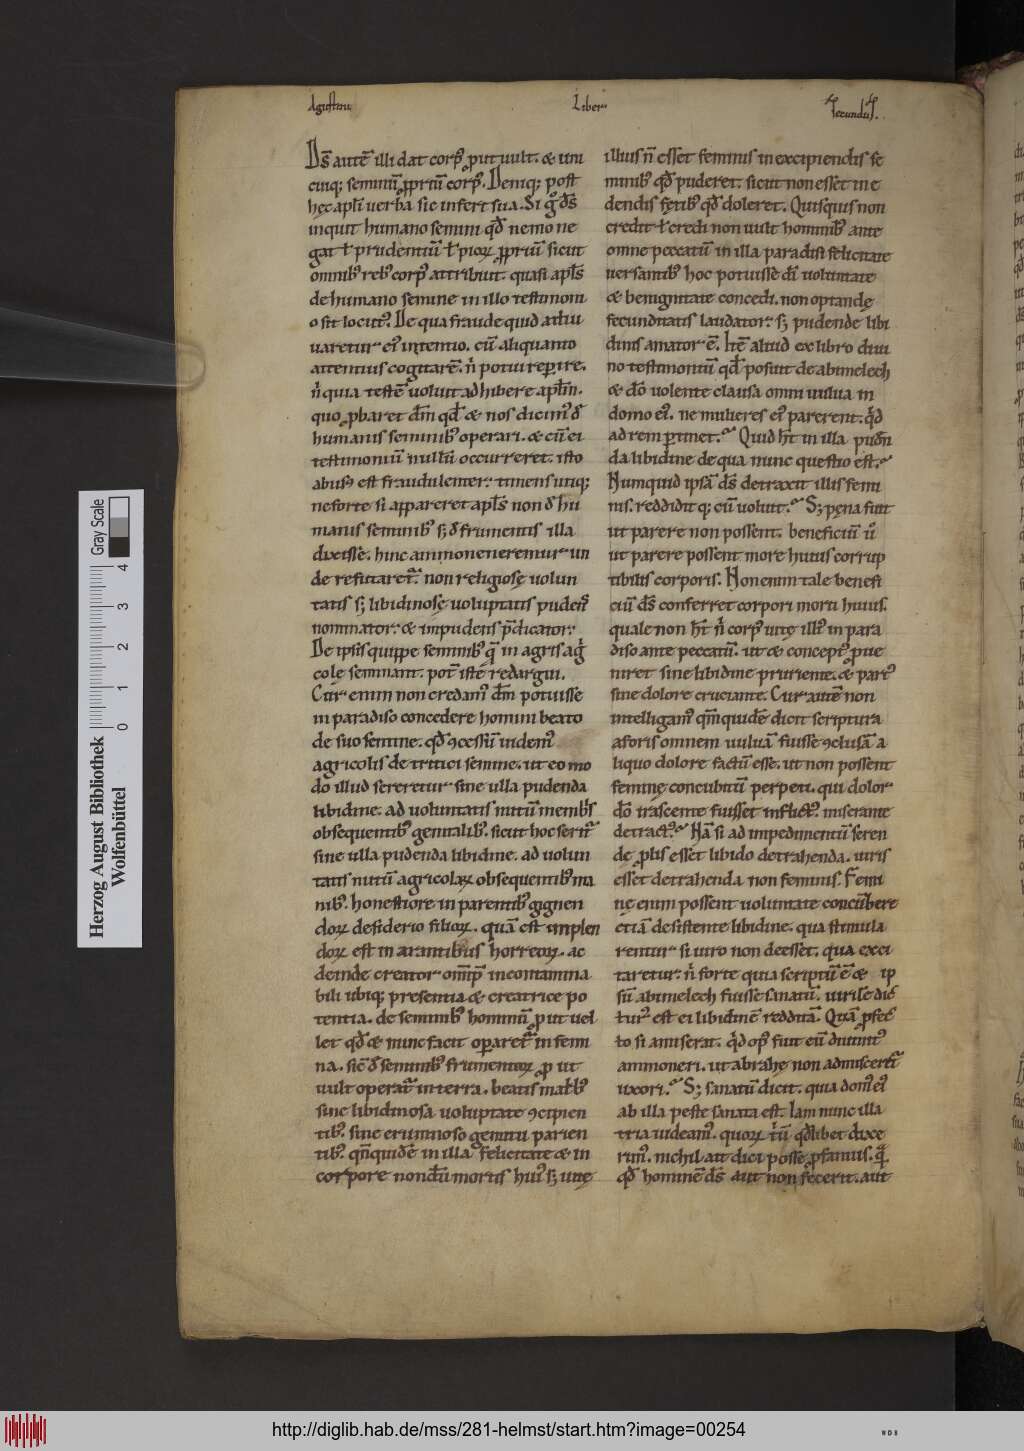 Agustini Liber Secundus.
Ds autē illi dat corp' ꝓut uult. & uni
cuiq; seminū ꝓpriū corp'. Deniq; post
hęc apłi uerba sic infert sua. Si g° ds
inquit humano semini qđ nemo ne
gat ł prudentiū ł pioꝝ ꝓpriū sicut
omnib' reb' corp' attribuit. quasi apłs
de humano semine in illo testimoni
o sit locut'. De qua fraude quid adiu
uaretur ei' intentio. cū aliquanto
attentius cogitarē. ń potui reperire.
ń quia testē uoluit adhibere apłm.
quo ꝓbaret dm̄ qđ & nos dicim' đ
humanis seminib' operari. & cū ei
testimoniū nullū occurreret. isto
abus' est fraudulenter. timens utiq;
ne forte si appareret apłs non đ hu
manis seminib' sꝫ đ frumentis illa
dixisse. hinc ammoneremur un
de refutaret². non religiosę uolun
tatis sꝫ libidinosę uoluptatis pudens
nominator. & impudens p̄dicator.
De ipsis quippe seminib' q̄ in agris agͥ
colę seminant. pot̄ iste redargui.
Cur enim non credam' dm̄ potuisse
in paradiso concedere homini beato
de suo semine. qđ ꝯcessū uidem'
agricolis de tritici semine. ut eo mo
do illud sereretur sine ulla pudenda
libidine. ad uoluntatis nutū membris
obsequentib' genitalib'. sicut hoc serit²
sine ulla pudenda libidine. ad uolun
tatis nutū agricolaꝝ obsequentib' ma
nib'. honestiore in parentib' gignen
doꝝ desiderio filioꝝ. quā est implen
doꝝ est in arantibus horreoꝝ. ac
deinde creator omp̄s incontamina
bili ubiq; presentia & creatrice po
tentia. de seminib' hominū ꝓut uel
let qđ & nunc facit operaret² in femi
na. sic̄ đ seminib' frumentoꝝ ꝓ ut
uult operat² in terra. beatis matrib'
sine libidinosa uoluptate ꝯcipien
tib'. sine erumnoso gemitu parien
tib'. qm̄quidē in illa felicitate & in
corpore nondū mortis hui' sꝫ uitę
illius ń esset feminis in excipiendis se
minib' qđ puderet. sicut non esset in e
dendis fętib' qđ doleret. Quisquis non
credit ł credi non uult hominib' ante
omne peccatū in illa paradisi felicitate
uersantib' hoc potuisse di uoluntate
& benignitate concedi. non optandę
fecunditatis laudator. sꝫ pudendę libi
dinis amator ē. Itē aliud ex libro diui
no testimoniū qđ posuit de abimelech
& dō uolente clausa omni uulua in
domo ei'. ne mulieres ei' parerent. qͥd
ad rem pertinet. Quid ht in illa puđn
da libidine de qua nunc questio est.
Numquid ipsā ds detraxit illis femi
nis. reddiditq; cū uoluit. Sꝫ pena fuit
ut parere non possent. beneficiū ů
ut parere possent more huius corrup
tibilis corporis. Non enim tale benefi
ciū ds conferret corpori morti huius.
quale non ht ń corp' uitę illi' in para
diso ante peccatū. ut & concept' ꝓue
niret sine libidine pruriente. & part'
sine dolore cruciante. Cur autē non
intelligam' qm̄quidē dicit scriptura
a foris omnem uuluā fuisse ꝯclusā a
liquo dolore factū esse. ut non possent
feminę concubitū perpeti. qui dolor
dō irascente fuisset inflict'. miserante
detract'. Nā si ad impedimentū seren
dę ꝓlis esset libido detrahenda. uiris
esset detrahenda non feminis. Femi
nę enim possent uoluntate concūbere
etiā desistente libidine. qua stimula
rentur si uiro non deesset. qua exci
taretur. ń forte quia scriptū ē & ip
sū abimelech fuisse sanatū. uirilē dic̄
tur' est ei libidinē redditā. Quā ꝓfec̄
to si amiserat. qͥd op' fuit eū diuinit'
ammoneri. ut abrahę non admisceret²
uxori. Sꝫ sanatū dicit. quia dom' ei'
ab illa peste sanata est. Iam nunc illa
tria uideam'. quoꝝ tͥū qđlibet dixe
rim'. nichil ait dici posse ꝓfanius. q̄
qđ hominē ds aut non fecerit. aut
Herzog August Bibliothek
Wolfenbüttel
0 1 2 3 4
Gray Scale
http://diglib.hab.de/mss/281-helmst/start.htm?image=00254
WDB